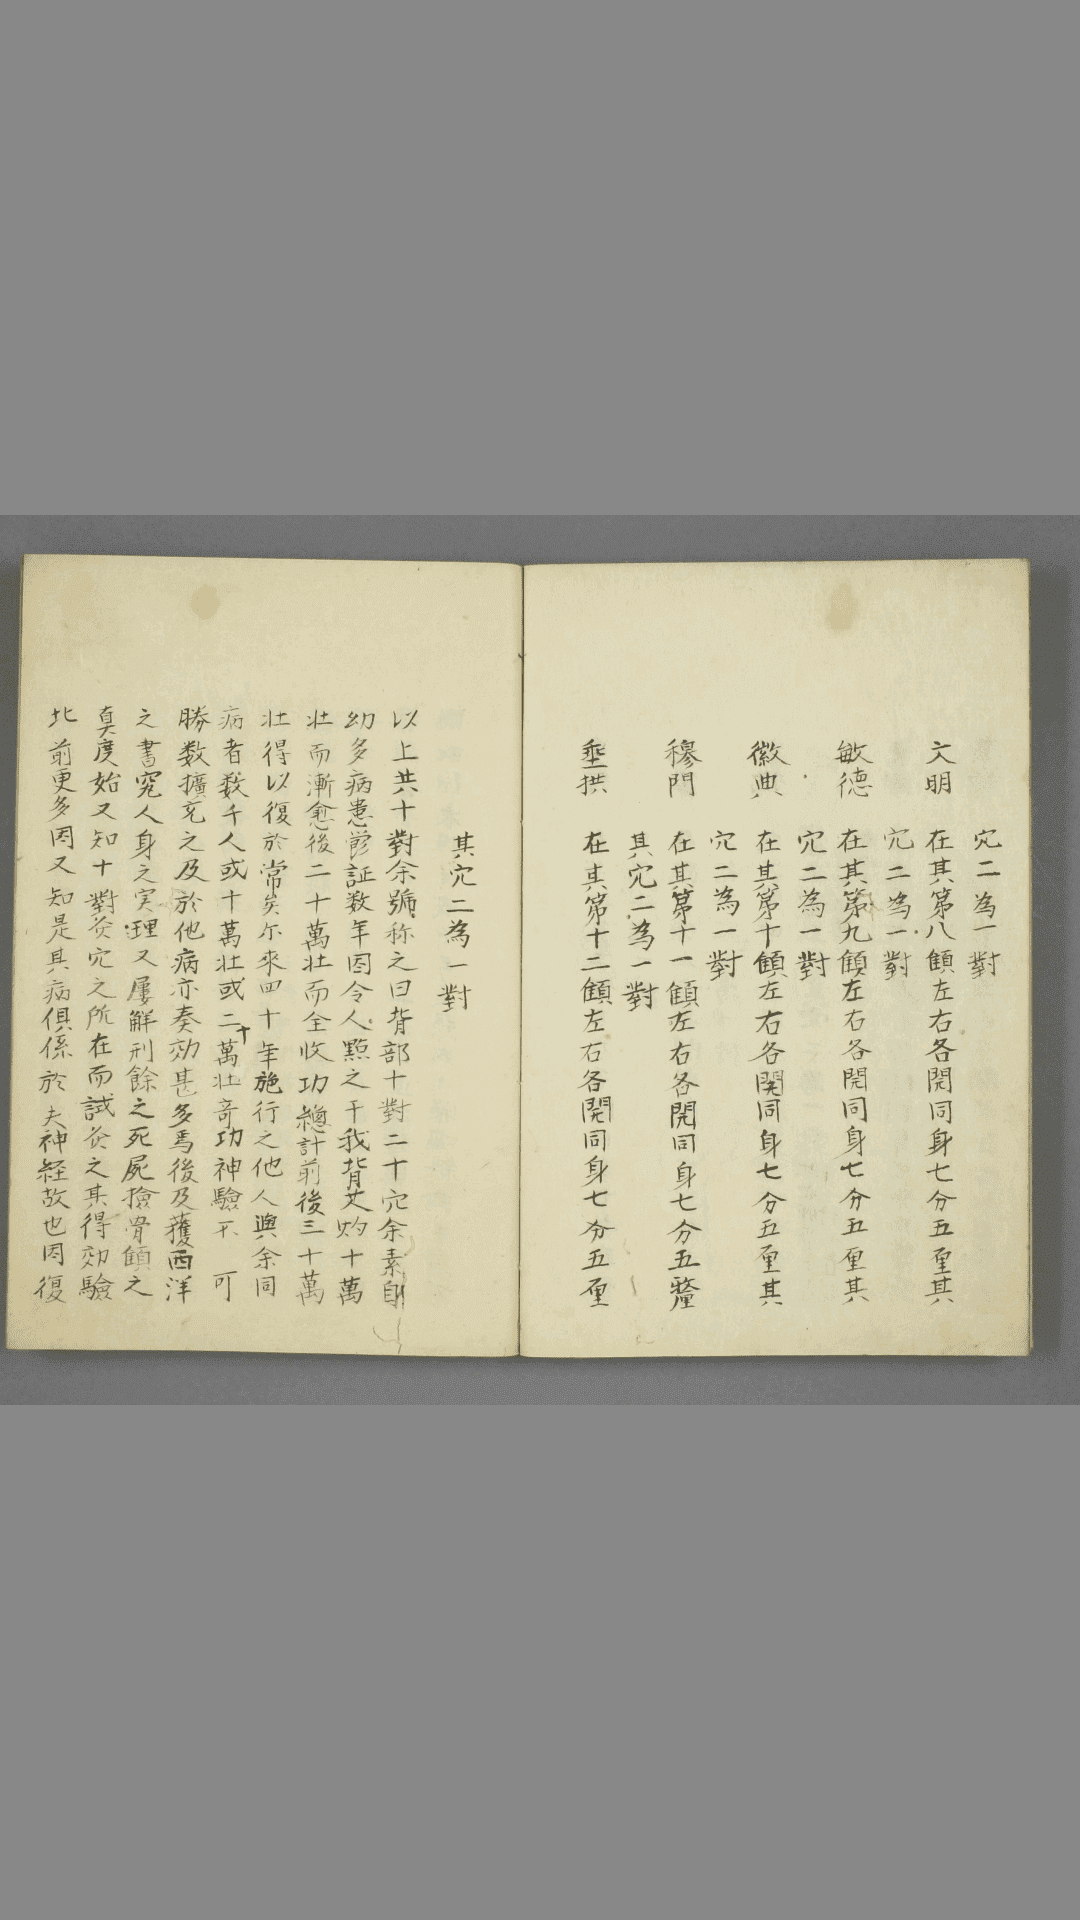 穴二為一對
文明 在其第八顀左右各開同身七分五厘其
穴二為一對
敏德 在其第九顀左右各開同身七分五厘其
穴二為一對
徽典 在其第十顀左右各開同身七分五厘其
穴二為一對
穆門 在其第十一顀左右各開同身七分五釐
其穴二為一對
垂拱 在其第十二顀左右各開同身七分五厘
其穴二為一對
以上共十對余號称之曰背部十對二十穴余素自
幼多病患欝証数年因令人點之于我背艾灼十萬
壮而漸愈後二十萬壮而全收功總計前後三十萬
壮得以復於常矣尓來四十年施行之他人與余同
病者数千人或十萬壮或二十萬壮竒功神驗不可
勝数擴充之及於他病亦奏効甚多焉後及獲西洋
之書究人身之実理又屢解刑餘之死屍撿骨顀之
真度始又知十對灸穴之所在而試灸之其得効驗
北前更多因又知是其病俱係於夫神経故也因復